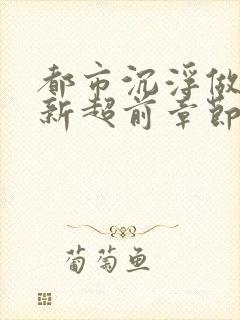 都市沉浮做
新超前章節
葡萄鱼